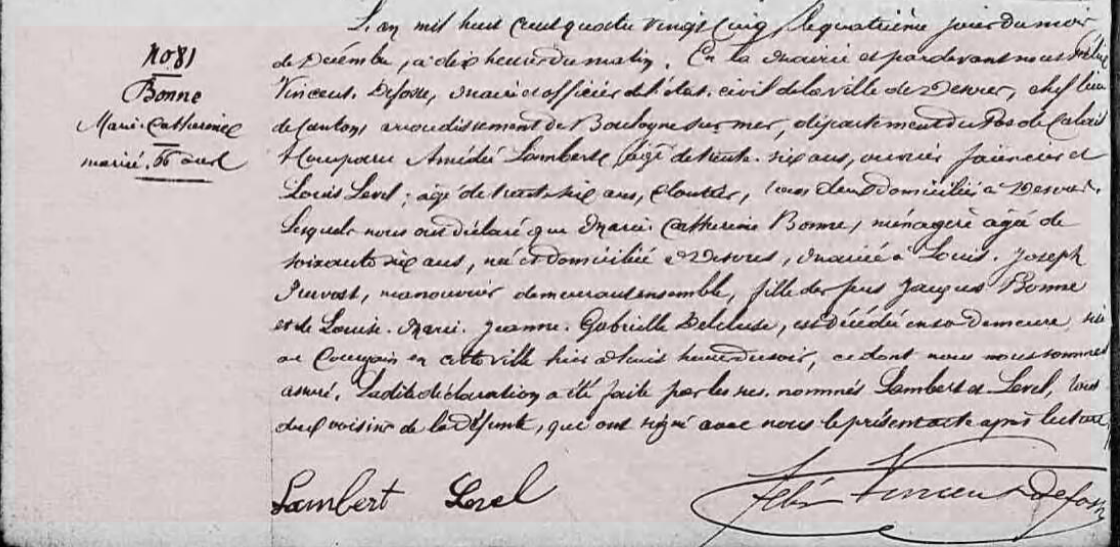 L'an mil huit cent quatre vingt cinq, le quatrième jour du mois
de Décembre, à dix heures du matin. En la Mairie et pardevant nous Félix
Vincent Defosse, Maire et officier de l'état civil de la ville de Desvres, chef lieu
de canton, arrondissement de Boulogne sur mer, département du Pas de Calais
Comparu Amédée Lambert, âgé de trente six ans, ouvrier faïencier et
Louis Level, âgé de trente six ans, cloutier, tous deux domiciliés à Desvres.
Lesquels nous ont déclaré que Marie Catherine Bonne, ménagère âgée de
soixante six ans, née et domiciliée à Desvres, Mariée à Louis Joseph
Prevost, manouvrier demeurant ensemble, fille des feus Jacques Bonne
et de Louise Marie Jeanne Gabrielle Delcluse, est décédée en sa demeure, sise
au Courgain en cette ville hier à heures du soir, ce dont nous nous sommes
assuré. Ladite déclaration a été faite par les sus nommés Lambert et Level, tous
deux voisins de la Défunte, qui ont signé avec nous le présent acte après lecture,
No 81
Bonne
Marie Catherine
mariée. 66 ans
Lambert Level
Félix Vincent Defosse